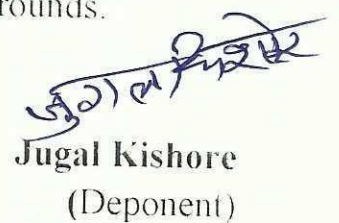 rounds.
जुगल किशोर
Jugal Kishore
(Deponent)